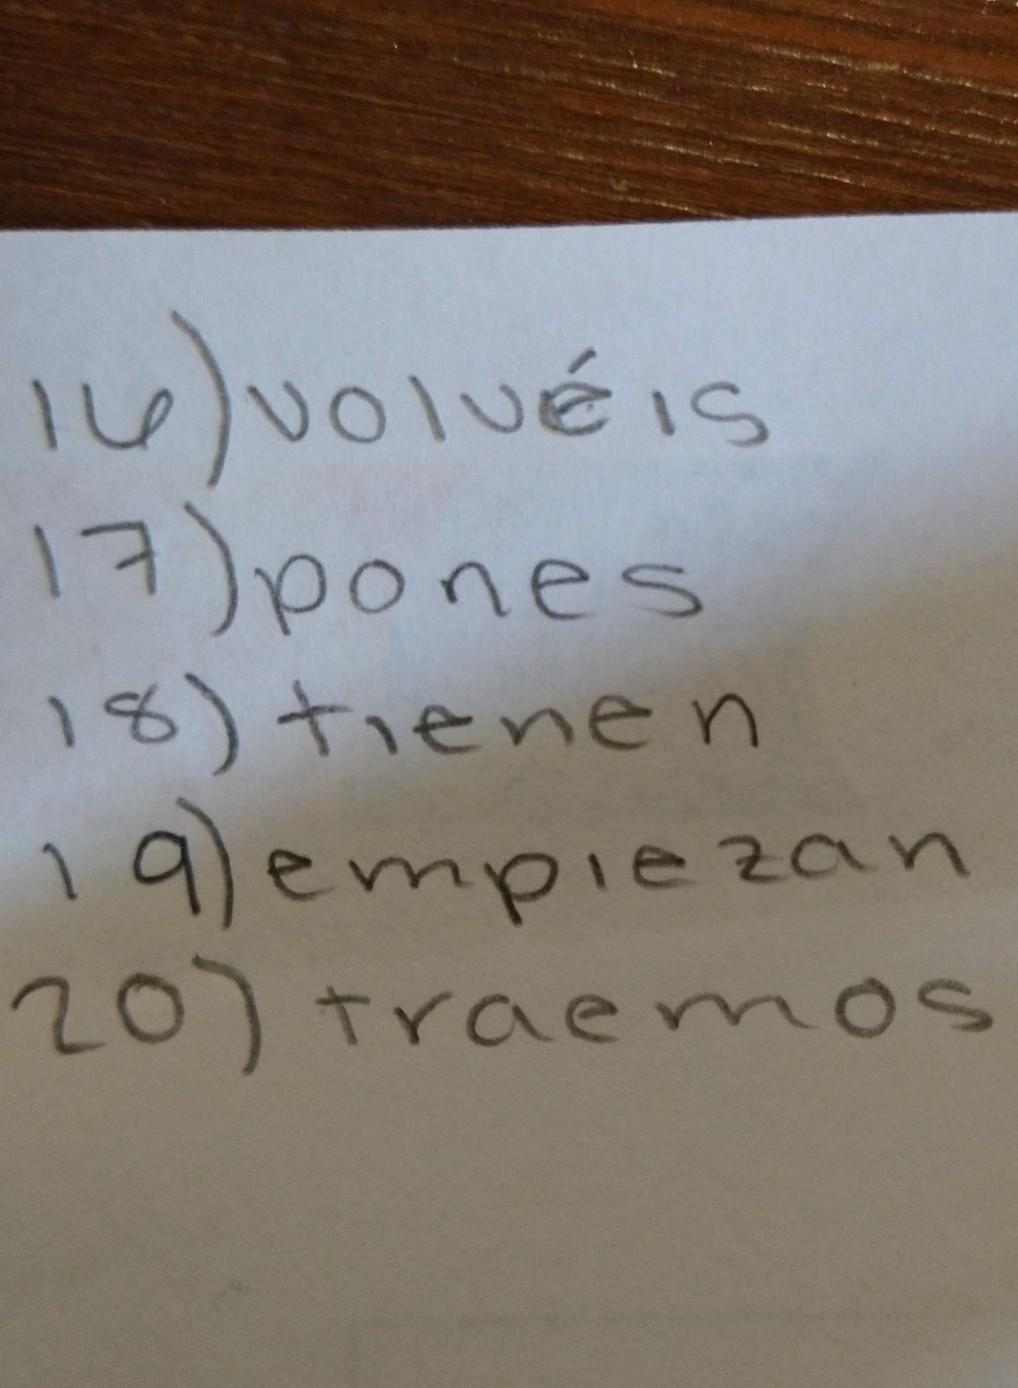 16) volvéis
17) pones
18) tienen
19) empiezan
20) traemos